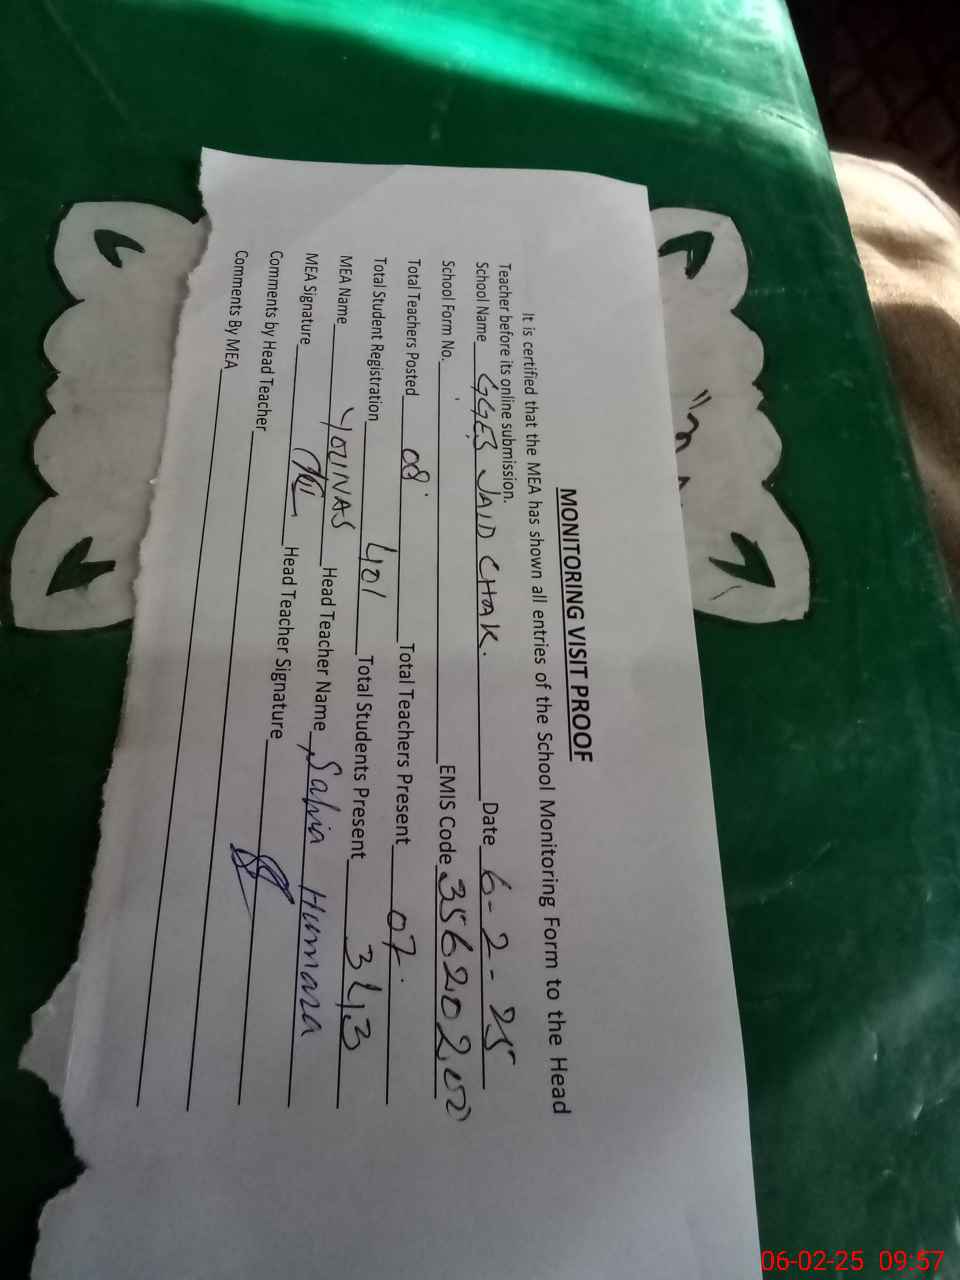 MONITORING VISIT PROOF
It is certified that the MEA has shown all entries of the School Monitoring Form to the Head
Teacher before its online submission.
School Name GGES JAID CHAK. Date 6-2-25
School Form No. EMIS Code 35620202
Total Teachers Posted 08 Total Teachers Present 07.
Total Student Registration 401 Total Students Present 343
MEA Name YOUNAS Head Teacher Name Humara
MEA Signature Head Teacher Signature
Comments by Head Teacher
Comments By MEA
06-02-25 09:57